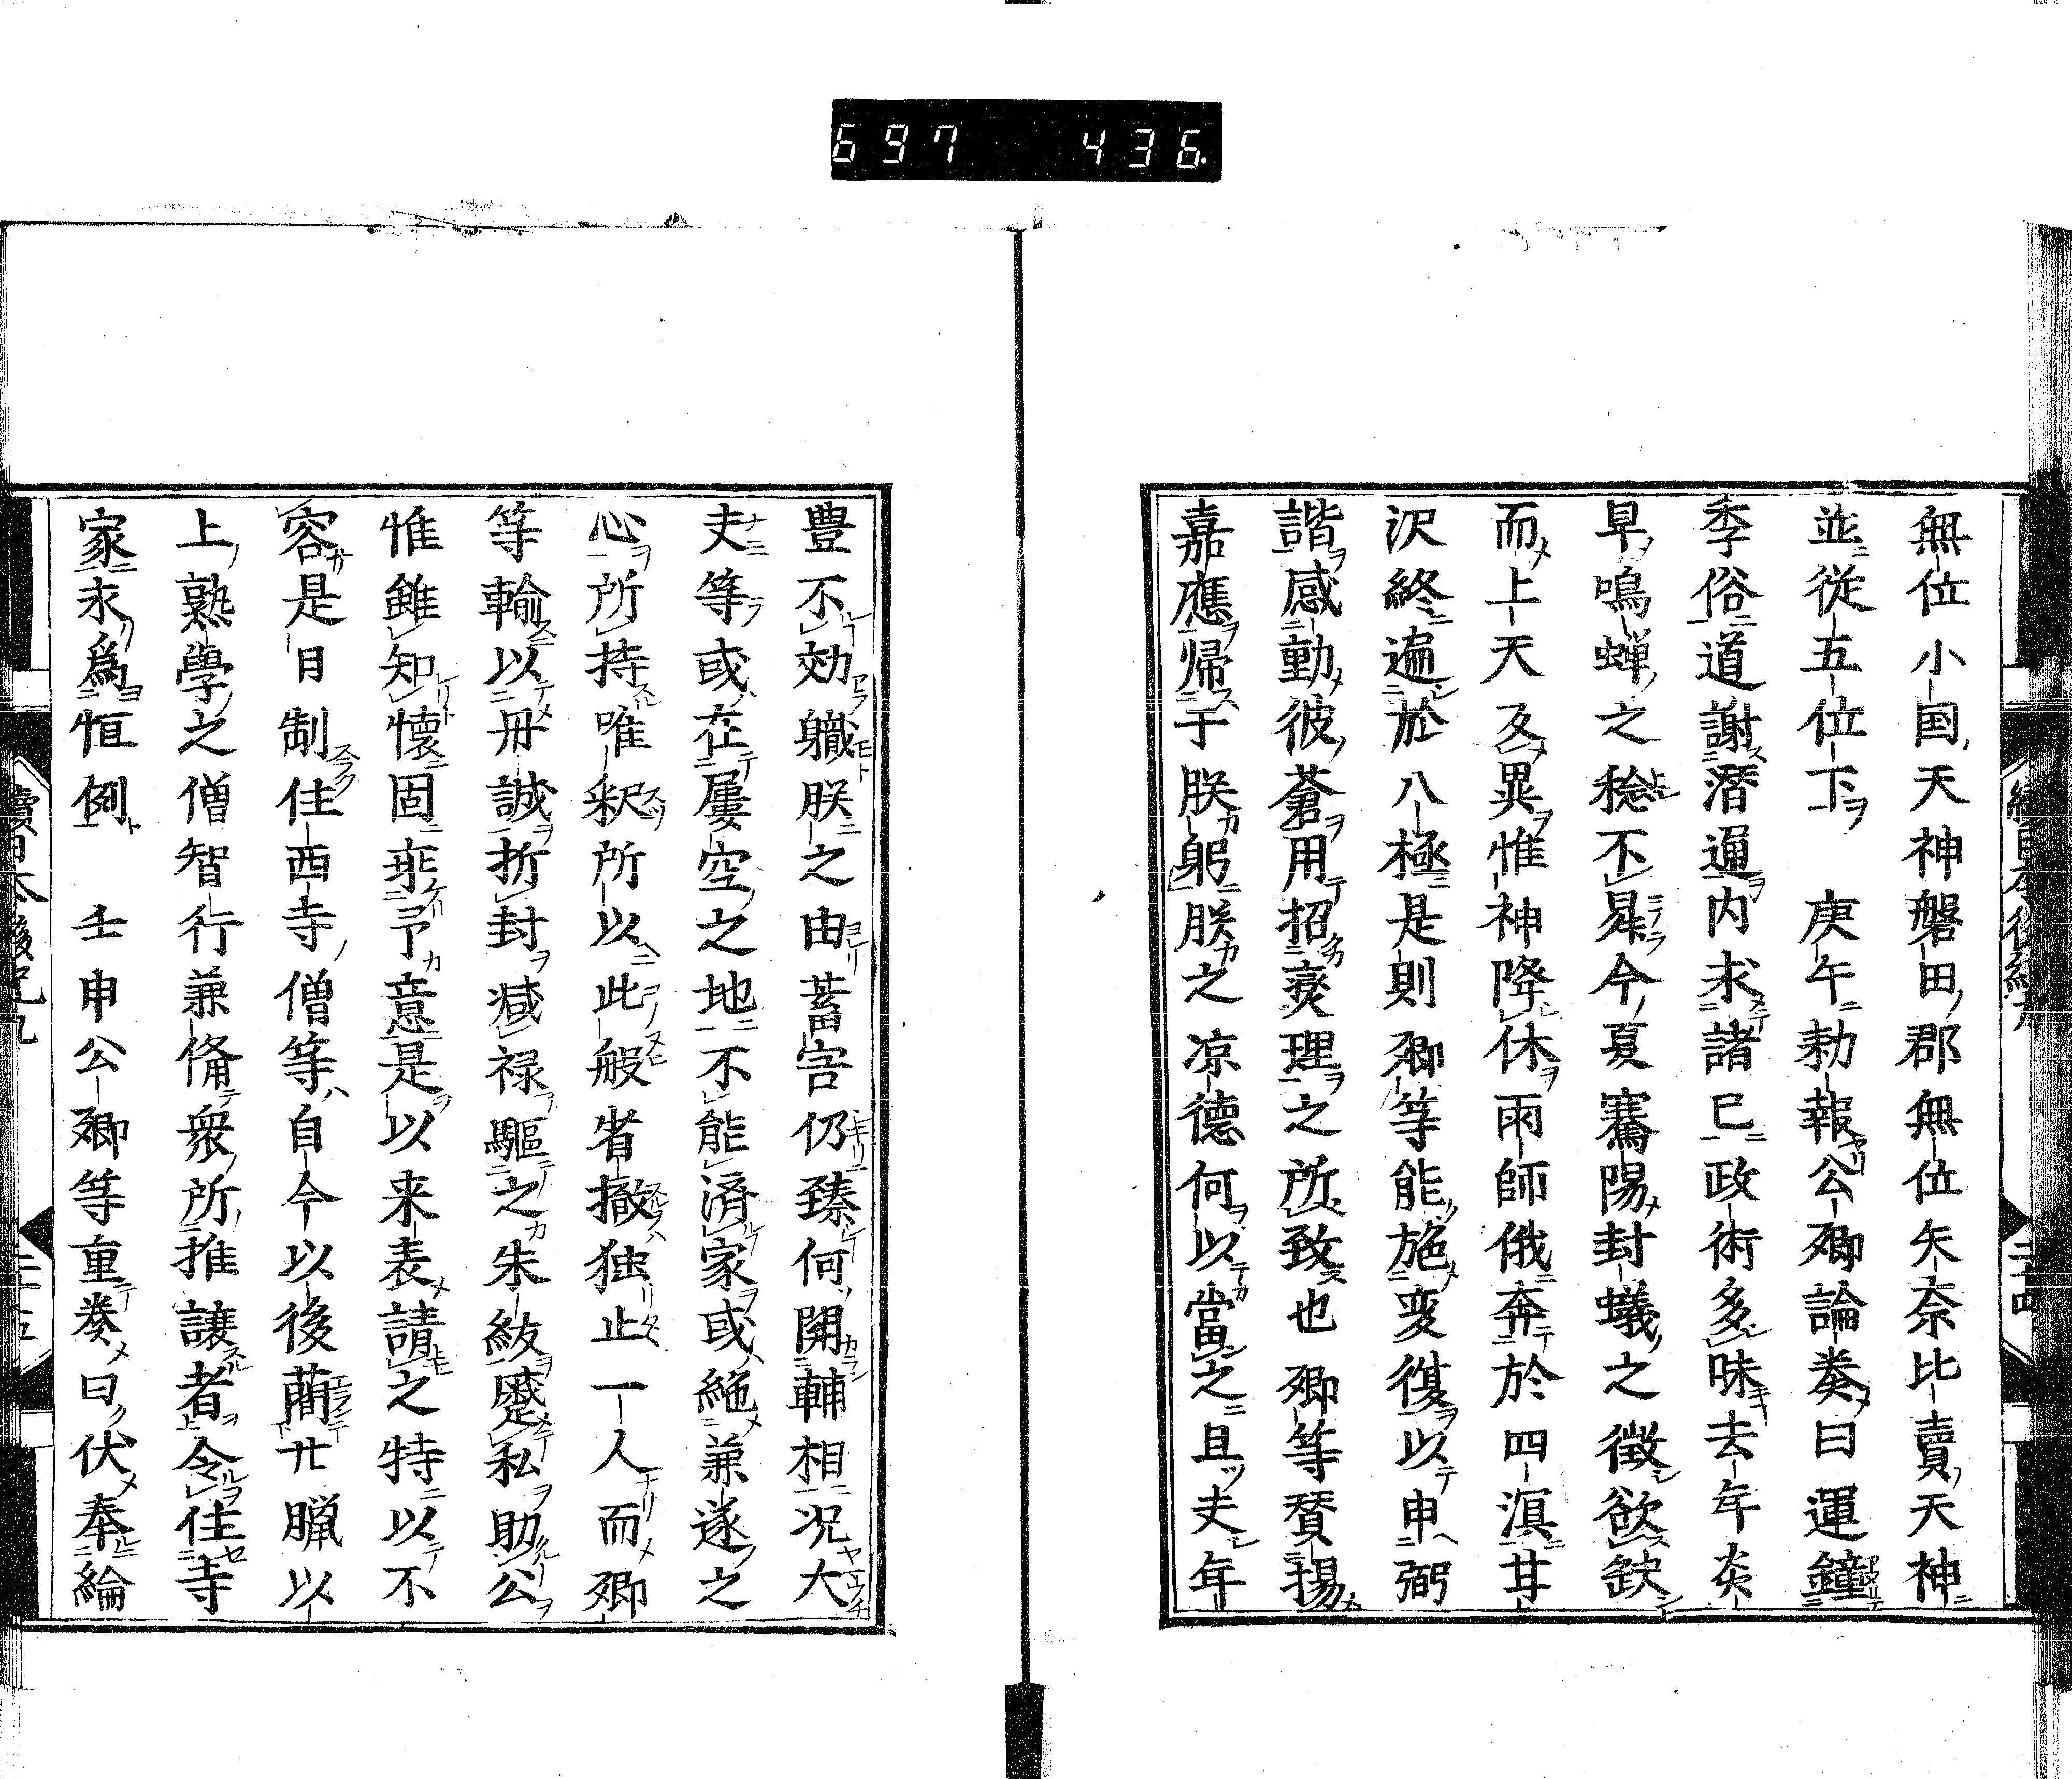 697 436
無位小国天神磐田郡無位矢奈比賣天神
並従五位下　庚午勅報公卿論奏曰運鐘
季俗道謝潛通内求諸已政術多昧去年炎
旱鳴蝉之稔不暑今夏驀陽封蟻之徴欲缺
而上天反異惟神降休雨師俄奔於四溟甘
沢終遍於八極是則卿等能施変復以申弼
諧感動彼蒼用招爕理之所致也卿等賛揚
嘉應帰于朕躬朕之凉德何以當之且夫年
豊不効職朕之由蓄害仍臻何関輔相况大
夫等或在屢空之地不能済家或絶兼遂之
心所持唯釈所以此般省撤独止一人而卿
等輸以丹誠折封减禄驅之朱紱蹙私助公
惟雖知懷固乖予意是以来表請之特以不
容是日制住西寺僧等自今以後簡廿臈以
上熟學之僧智行兼脩衆所推讓者令住寺
家永為恒例　壬申公卿等重奏曰伏奉綸